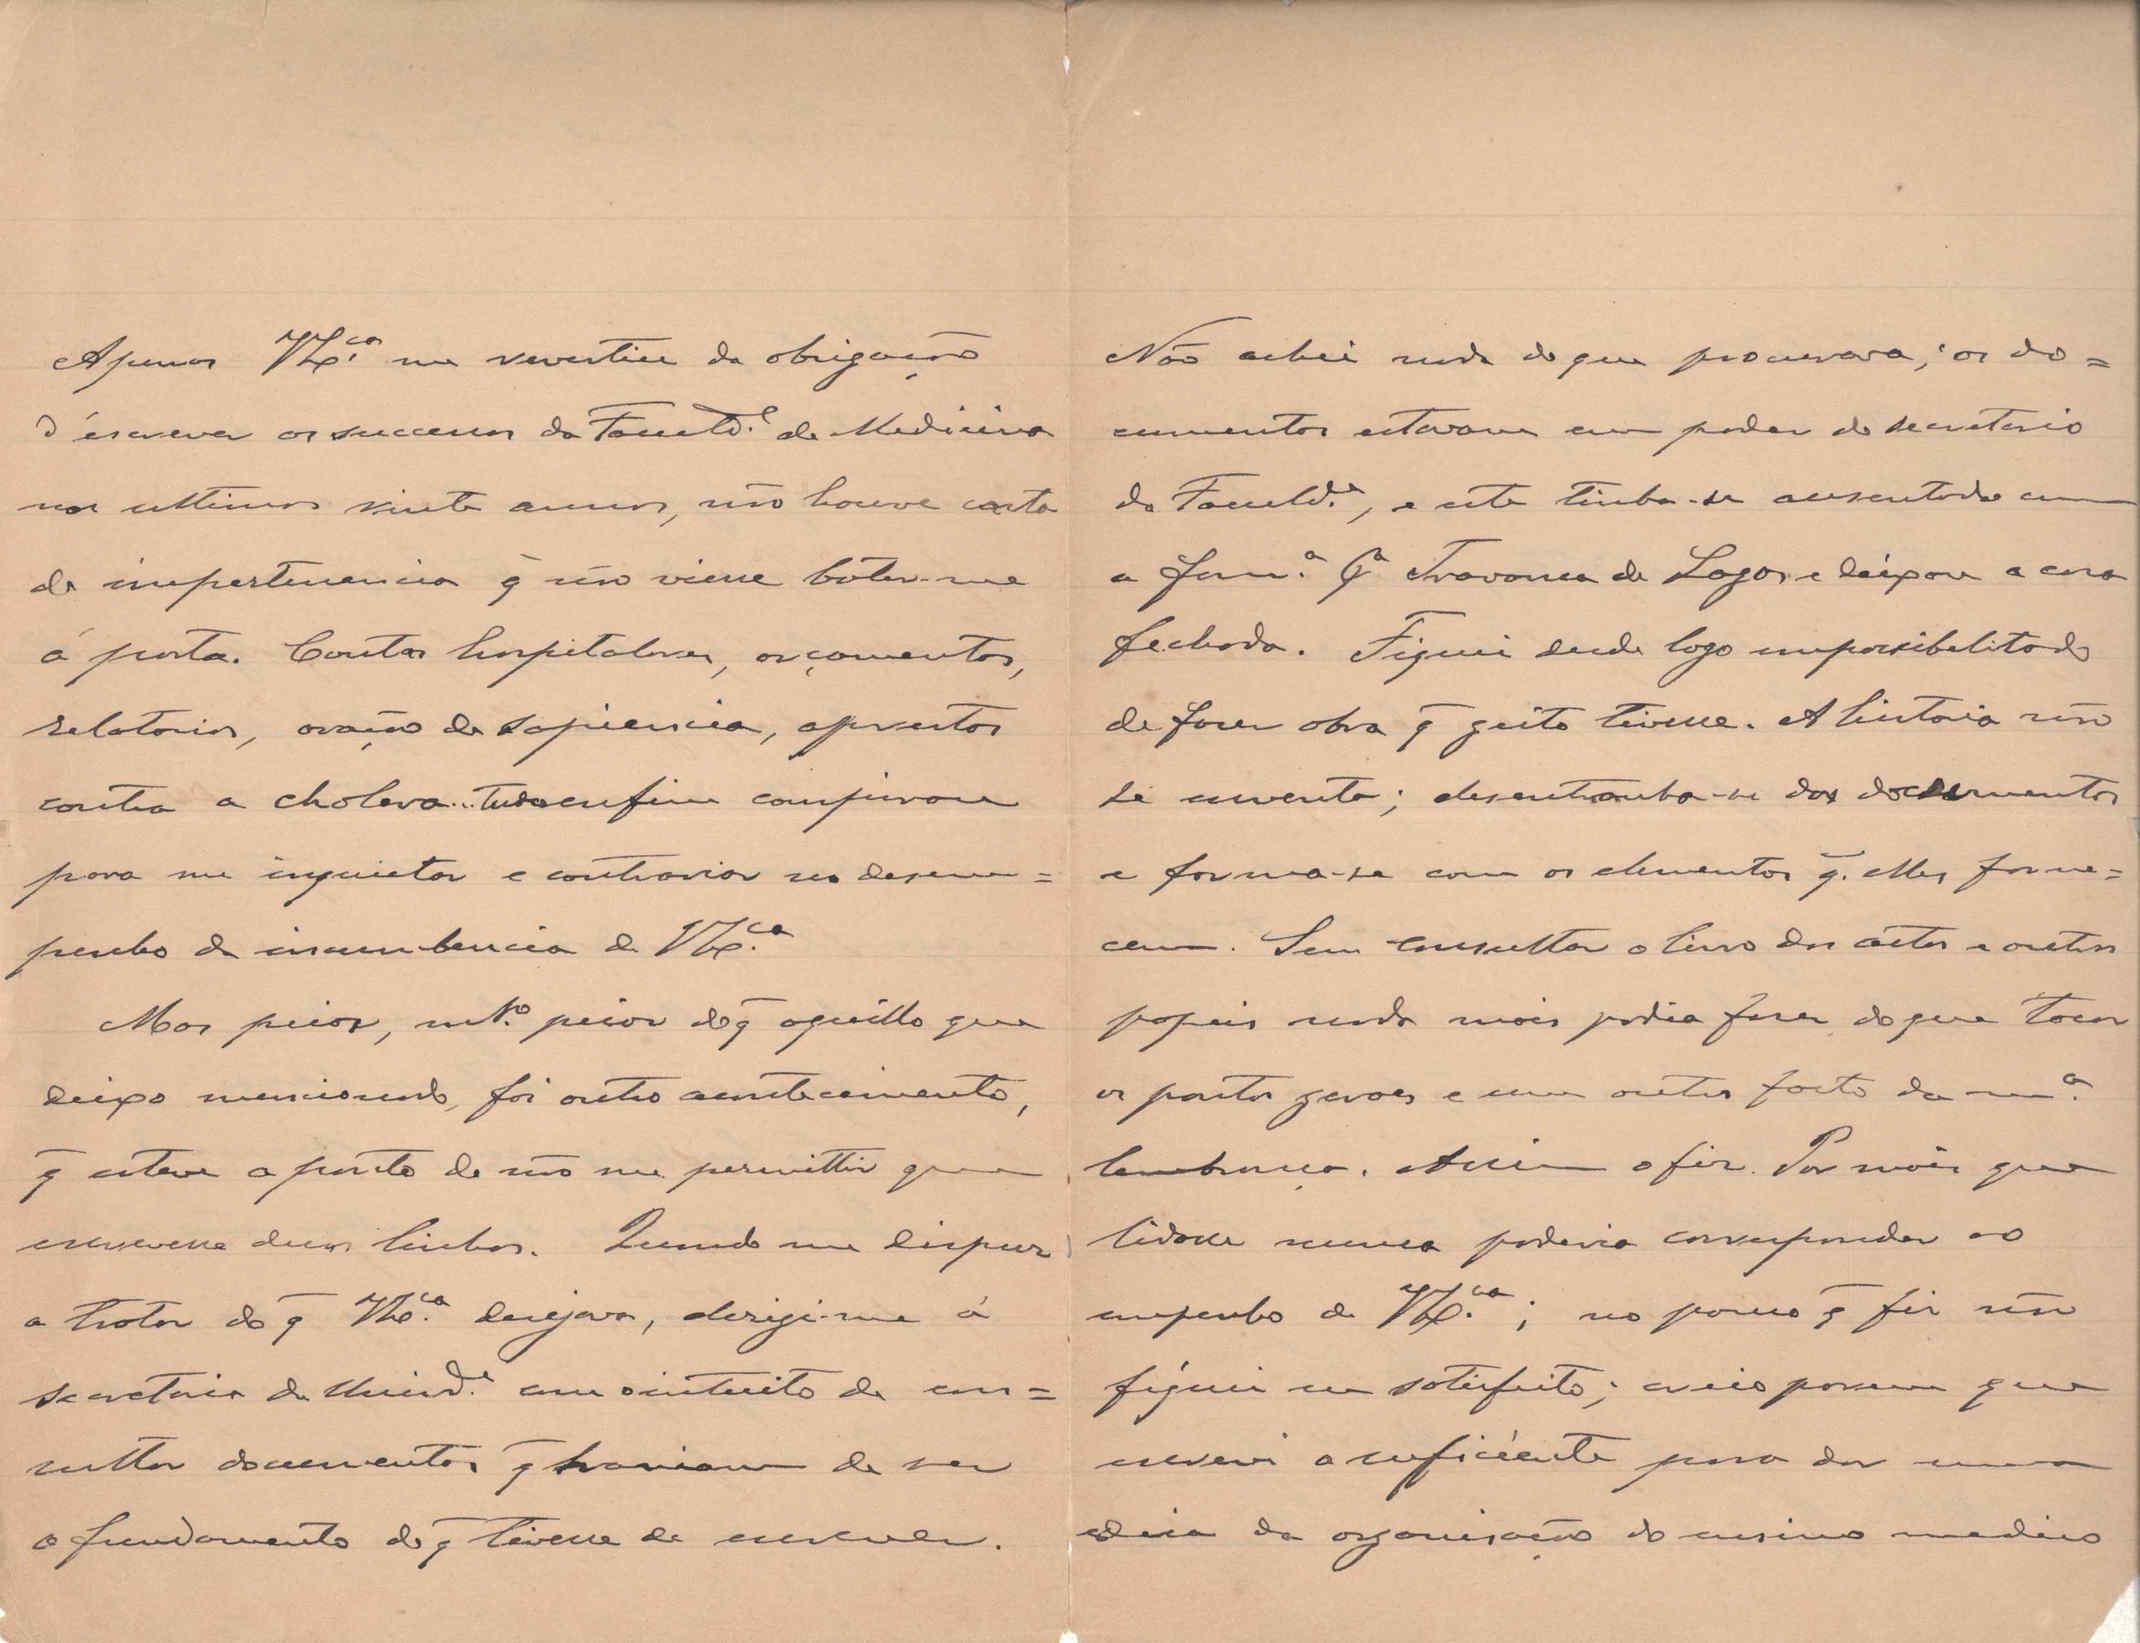 Apenas V. Ex.cia me revestiu da obrigação
d'escrever os successos da Faculd.e de Medicina
nos ultimos vinte annos, não houve casta
de impertinencia q̃ não viesse bater-me
á porta. Contas hospitalares, orçamentos,
relatorios, oração de sapiencia, aprestos
contra a cholera... tudo enfim conspirou
para me inquietar e contrariar no desem=
penho da incumbencia de V. Ex.cia
Mas peior, mt.º peior do q̃ aquillo que
deixo mencionado, foi outro acontecimento,
q̃ esteve a ponto de não me permittir que
escrevesse duas linhas. Quando me dispuz
a tratar do q̃ V. Ex.cia desejava, dirigi-me á
secretaria da Univers.de com o intuito de con=
sultar documentos q̃ haviam de ser
o fundamento do q̃ tivesse de escrever.
Não achei nada do que procurava; os do=
cumentos estavam em poder do secretario
da Faculd.e, e este tinha-se ausentado com
a fam.ª p.ª Travanca de Lagos e deixou a casa
fechada. Fiquei desde logo impossibilitado
de fazer obra q̃ geito tivesse. A historia não
se inventa; desentranha-se dos documentos
e forma-se com os elementos q̃ elles forne=
cem. Sem consultar o livro das actas e outros
papeis nada mais podia fazer do que tocar
os pontos geraes e um outro facto da m.ª
lembrança. Assim o fiz. Por mais que
lidasse nunca poderia corresponder ao
empenho de V. Ex.cia; no pouco q̃ fiz não
fiquei eu satisfeito; creio porem que
escrevi o sufficiente para dar uma
ideia da organisação do ensino medico